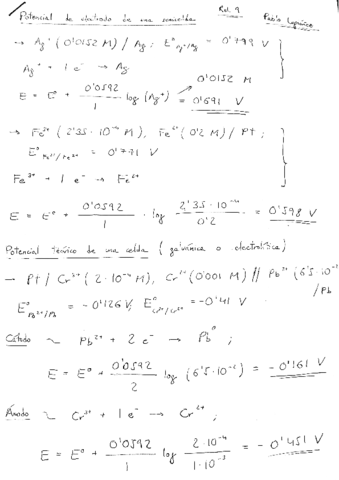 Rel. 9
Potencial de electrodo de una semicelda
→ Ag⁺ (0'0152 M) / Ag ; E° Ag⁺/Ag = 0'799 V
Ag⁺ + 1 e⁻ → Ag
0'0152 M
E = E° + 0'0592/1 log (Ag⁺) = 0'691 V
→ Fe³⁺ (2'35·10⁻⁴ M), Fe²⁺ (0'2 M) / Pt ;
E° Fe³⁺/Fe²⁺ = 0'771 V
Fe³⁺ + 1 e⁻ → Fe²⁺
E = E° + 0'0592/1 · log 2'35·10⁻⁴/0'2 = 0'598 V
Potencial teórico de una celda (galvánica o electrolítica)
→ Pt / Cr³⁺ (2·10⁻⁴ M), Cr²⁺ (0'001 M) // Pb²⁺ (6'5·10⁻²
/ Pb
E° Pb²⁺/Pb = -0'126 V, E° Cr³⁺/Cr²⁺ = -0'41 V
Cátodo ~ Pb²⁺ + 2 e⁻ → Pb⁰ ;
E = E° + 0'0592/2 log (6'5·10⁻²) = -0'161 V
Ánodo ~ Cr³⁺ + 1 e⁻ → Cr²⁺ ;
E = E° + 0'0592/1 log 2·10⁻⁴/1·10⁻³ = -0'451 V